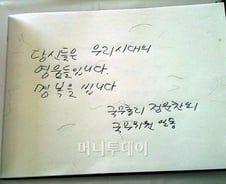 당신들은 우리시대의
영웅들입니다.
명복을 빕니다.
국무총리 정운찬외
국무위원 일동
머니투데이